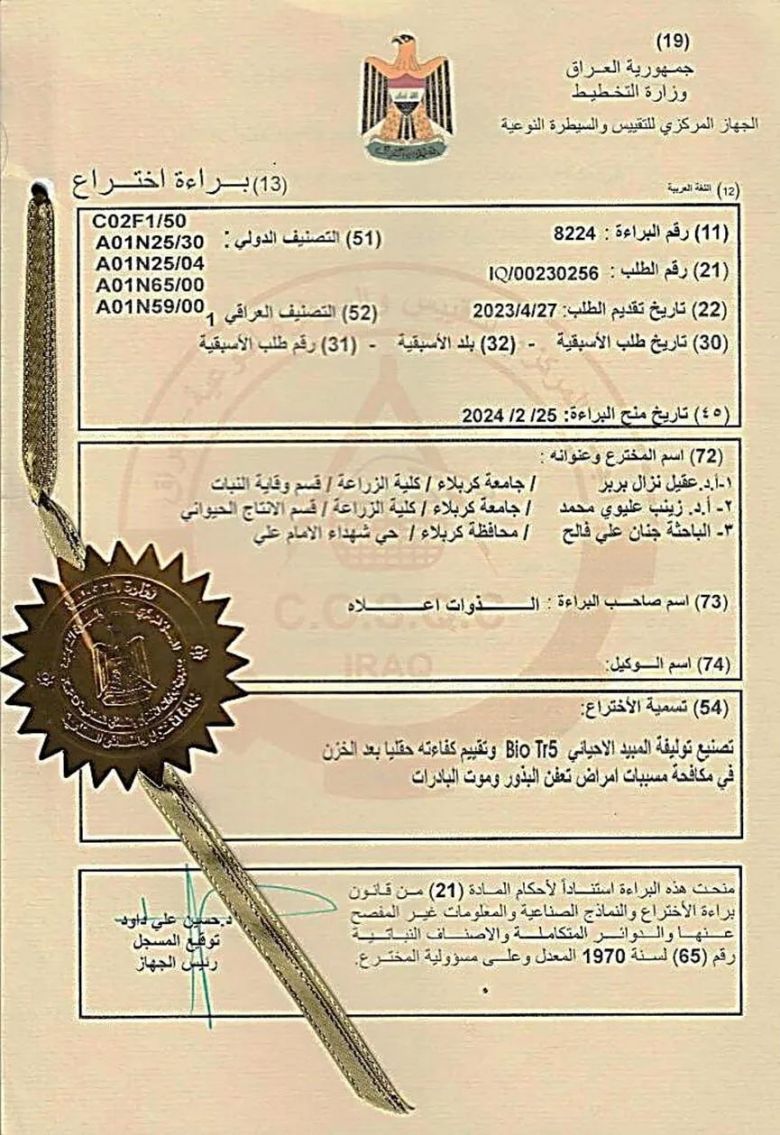 (19)
جمهورية العراق
وزارة التخطيط
الجهاز المركزي للتقييس والسيطرة النوعية
(12) اللغة العربية
(13) براءة اختراع
(11) رقم البراءة : 8224
(51) التصنيف الدولي :
C02F1/50
A01N25/30
A01N25/04
A01N65/00
A01N59/00
(21) رقم الطلب : IQ/00230256
(22) تاريخ تقديم الطلب: 2023/4/27
(52) التصنيف العراقي 1
(30) تاريخ طلب الأسبقية - (32) بلد الأسبقية - (31) رقم طلب الأسبقية
(٤٥) تاريخ منح البراءة: 25/ 2/ 2024
(72) اسم المخترع وعنوانه :
١-أ.د.عقيل نزال بربر / جامعة كربلاء / كلية الزراعة / قسم وقاية النبات
٢- أ.د. زينب عليوي محمد / جامعة كربلاء / كلية الزراعة / قسم الانتاج الحيواني
٣- الباحثة جنان علي فالح / محافظة كربلاء / حي شهداء الامام علي
(73) اسم صاحب البراءة : الذوات اعلاه
C.O.S.Q.C
IRAQ
(74) اسم الوكيل:
(54) تسمية الأختراع:
تصنيع توليفة المبيد الاحيائي Bio Tr5 وتقييم كفاءته حقليا بعد الخزن
في مكافحة مسببات امراض تعفن البذور وموت البادرات
منحت هذه البراءة استناداً لأحكام المادة (21) من قانون
براءة الأختراع والنماذج الصناعية والمعلومات غير المفصح
عنها والدوائر المتكاملة والاصناف النباتية
رقم (65) لسنة 1970 المعدل وعلى مسؤولية المخترع.
د.حسين علي داود
توقيع المسجل
رئيس الجهاز